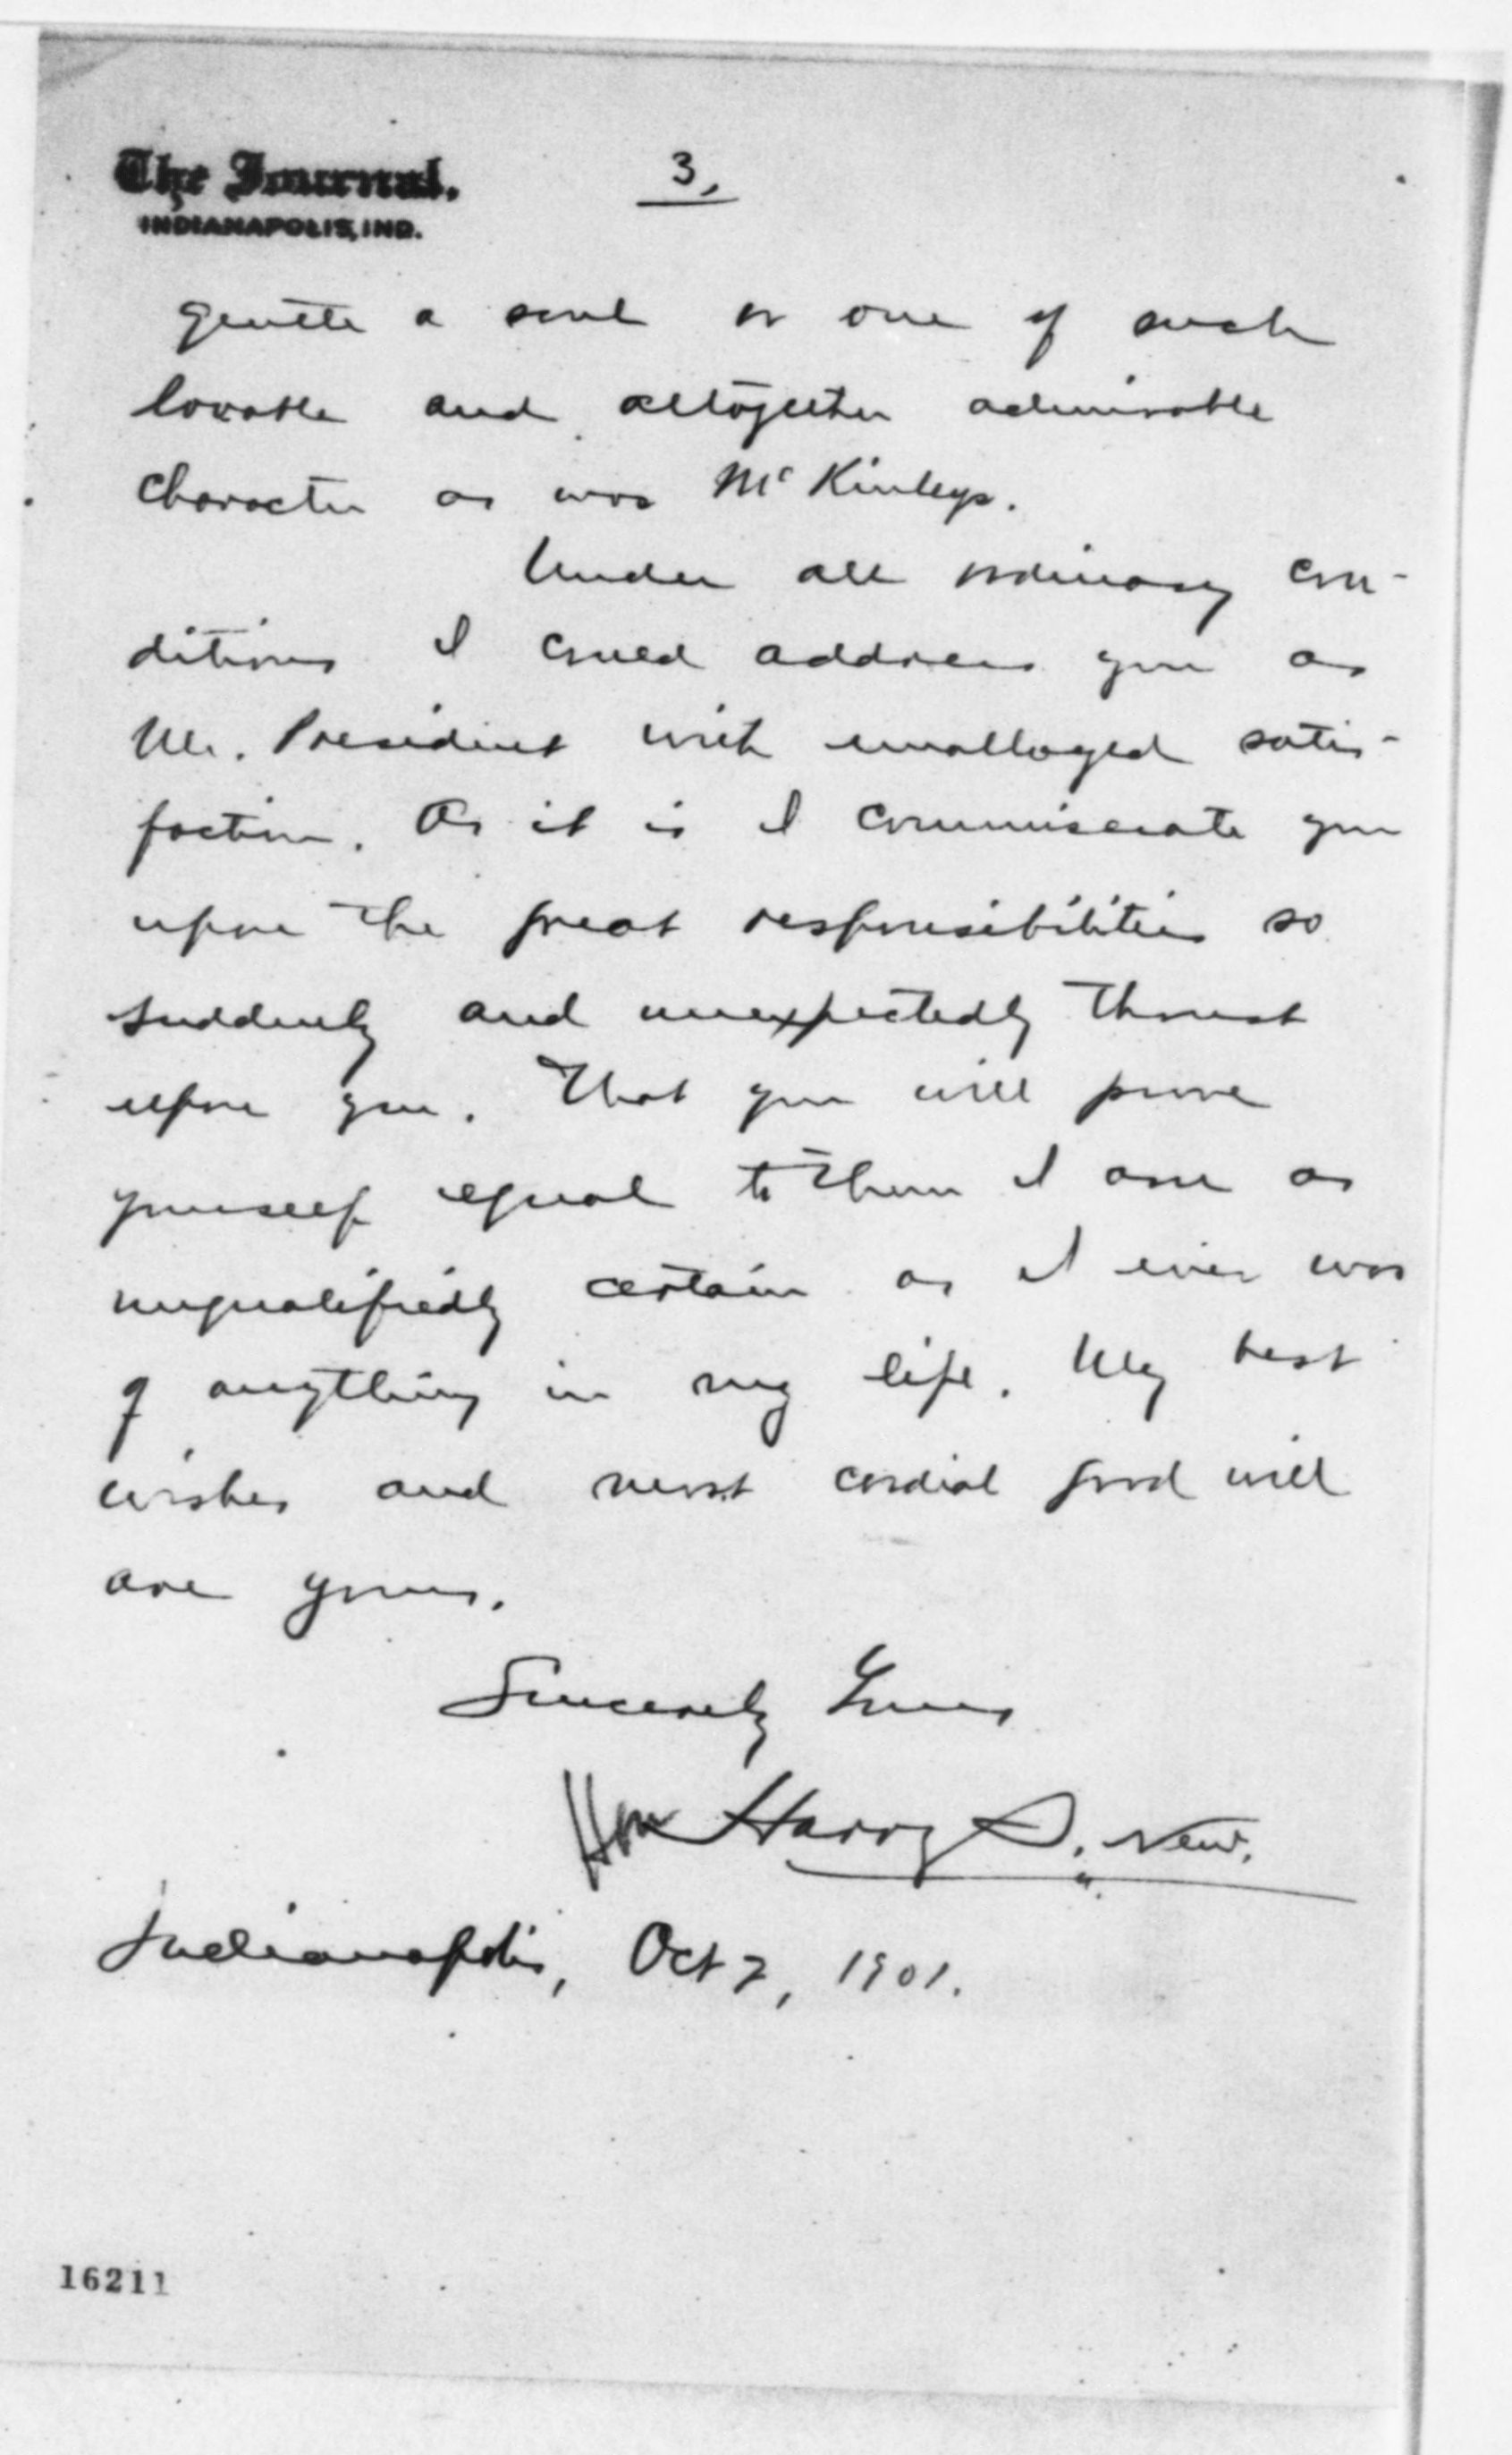 The Journal. 3.
INDIANAPOLIS, IND.
gentle a soul or one of such
lovable and altogether admirable
character as was McKinleys.
Under all ordinary con-
ditions I could address you as
Mr. President with unalloyed satis-
faction. As it is I commiserate you
upon the great responsibilities so
suddenly and unexpectedly thrust
upon you. That you will prove
yourself equal to them I am as
unqualifiedly certain as I ever was
of anything in my life. My best
wishes and most cordial good will
are yours.
Sincerely Yours
Hon Harry S. New.
Indianapolis, Oct 2, 1901.
16211